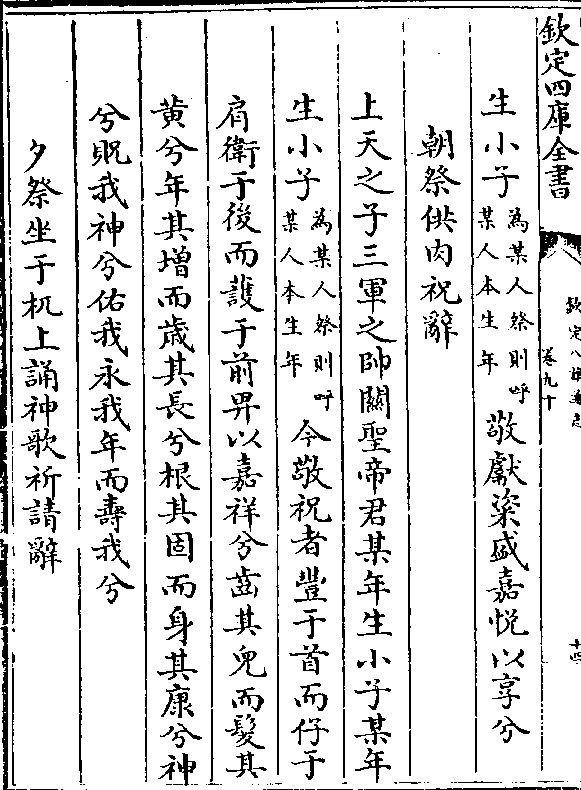 欽定四庫全書
欽定八旗通志
卷九十
十四
生小子為某人祭則呼某人本生年敬獻粢盛嘉悅以享兮
朝祭供肉祝辭
上天之子三軍之帥關聖帝君某年生小子某年
生小子為某人祭則呼某人本生年今敬祝者豐于首而仔于
肩衛于後而護于前畀以嘉祥兮齒其兒而髮其
黄兮年其增而歲其長兮根其固而身其康兮神
兮貺我神兮佑我永我年而壽我兮
夕祭坐于机上誦神歌祈請辭